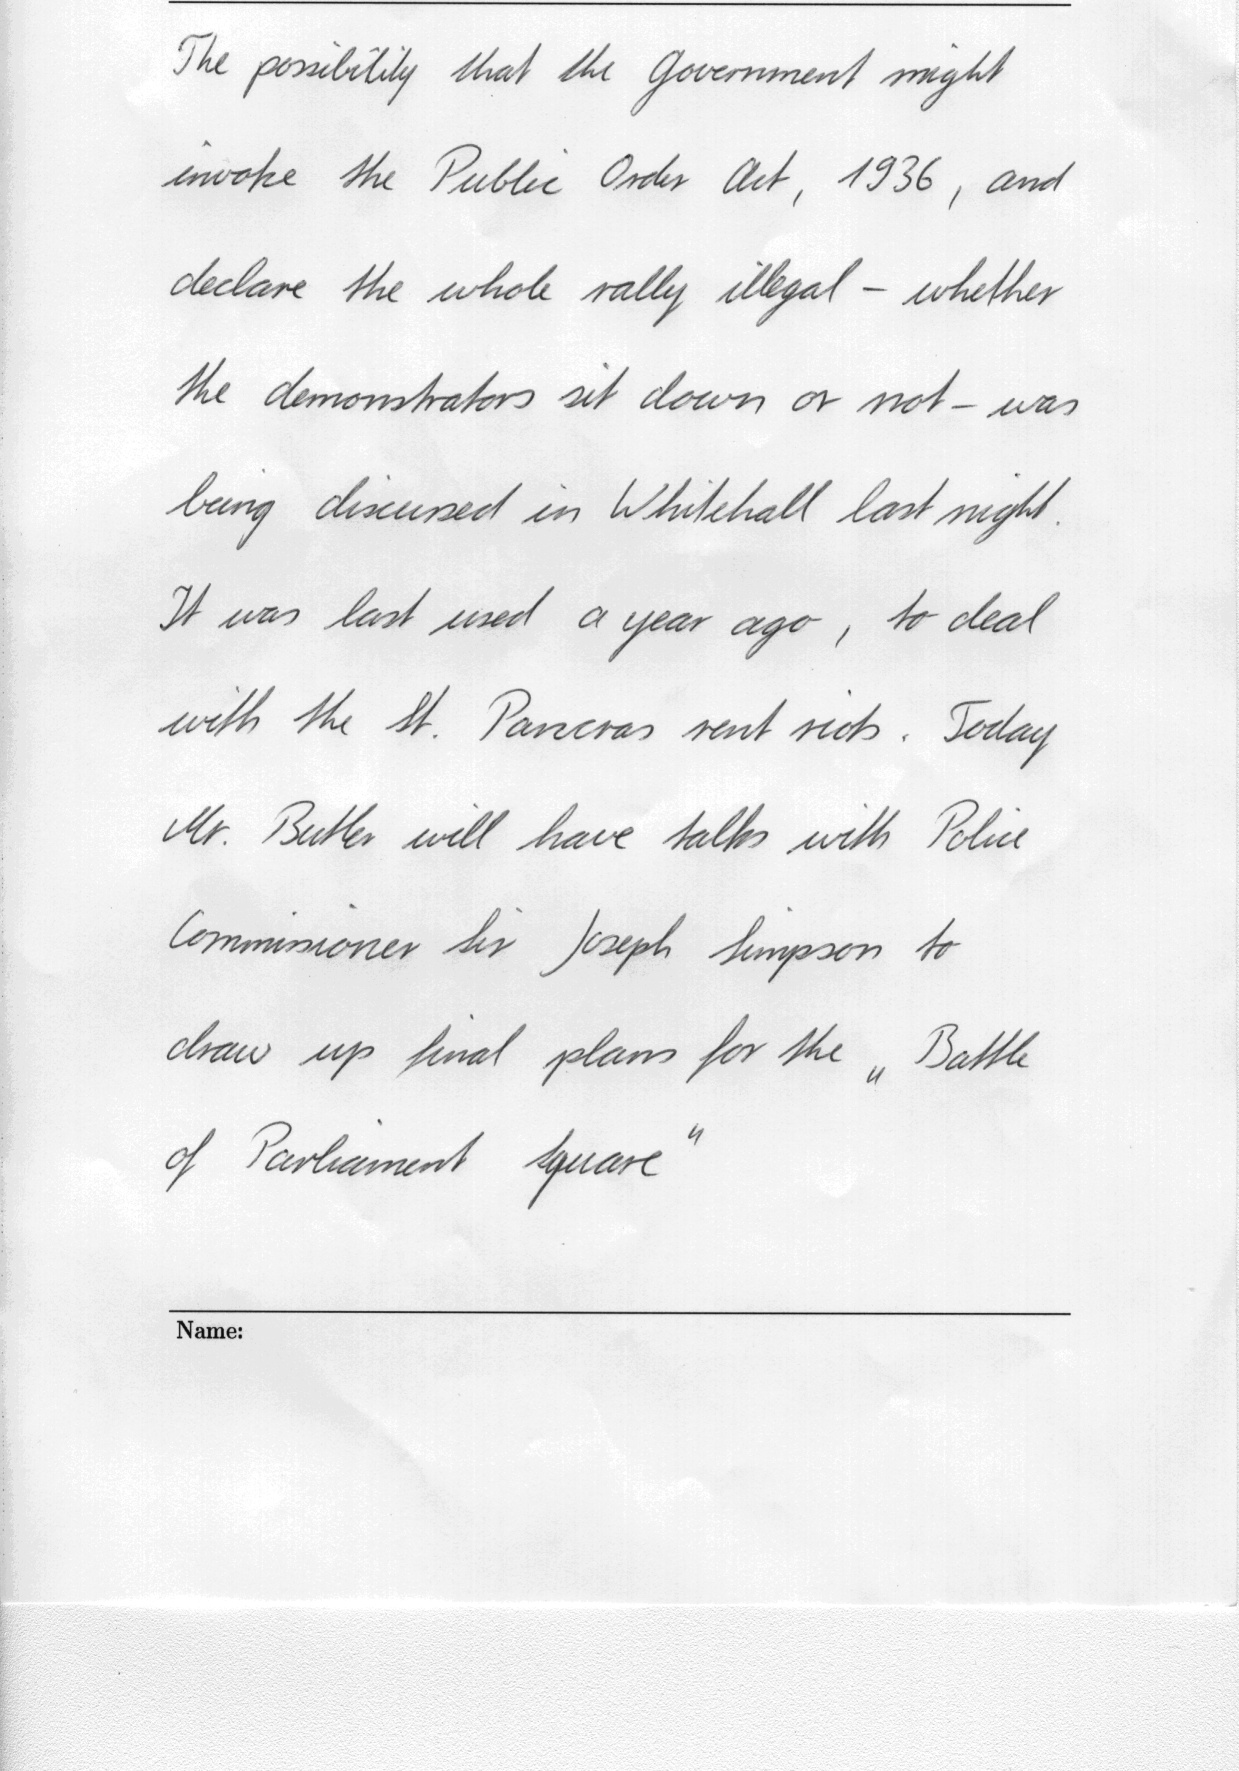 The possibility that the Government might
invoke the Public Order Act, 1936, and
declare the whole rally illegal – whether
the demonstrators sit down or not – was
being discussed in Whitehall last night.
It was last used a year ago, to deal
with the St. Pancras rent riots. Today
Mr. Butler will have talks with Police
Commissioner Sir Joseph Simpson to
draw up final plans for the „Battle
of Parliament Square“
Name: